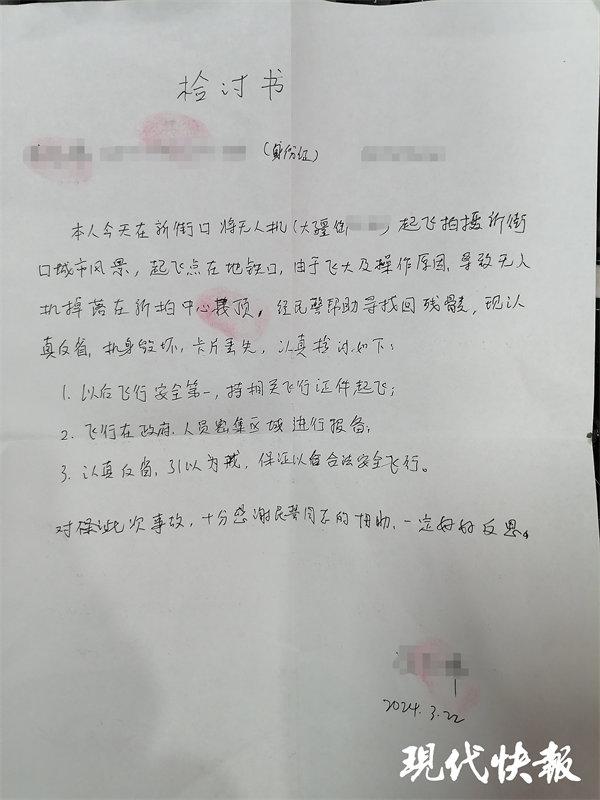 检讨书
(身份证)
本人今天在新街口将无人机(大疆御 ),起飞拍摄新街
口城市风景,起飞点在地铁口,由于飞大及操作原因,导致无人
机掉落在新拍中心楼顶,经民警帮助寻找回残骸,现认
真反省,机身毁坏,卡片丢失,认真检讨如下:
1. 以后飞行安全第一,持相关飞行证件起飞;
2. 飞行在政府、人员密集区域进行报备;
3. 认真反省,引以为戒,保证以后合法安全飞行。
对 此次事故,十分感谢民警同志的协助,一定好好反思。
2024.3.22
现代快報